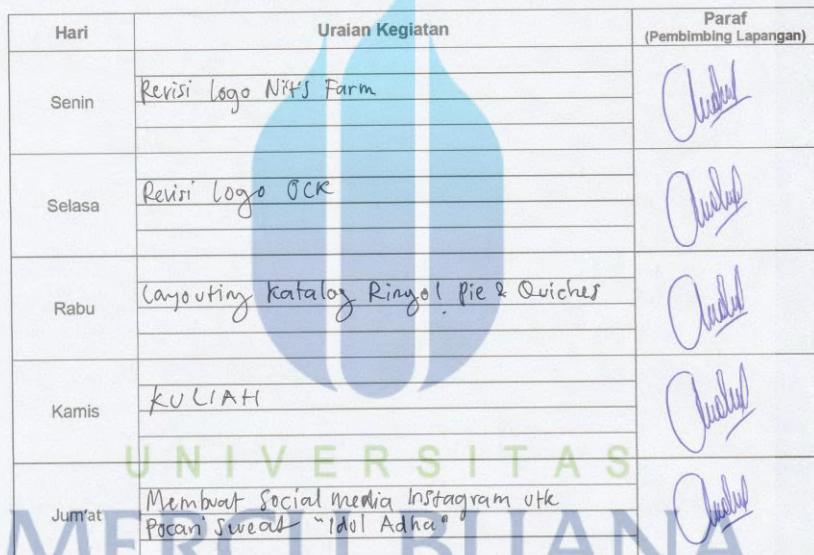 Hari
Uraian Kegiatan
Paraf
(Pembimbing Lapangan)
Senin
Revisi Logo Nit's Farm
Selasa
Revisi Logo OCK
Rabu
Layouting Katalog Ringo! Pie & Quiches
Kamis
KULIAH
Jum'at
Membuat Social media Instagram utk
Pocari Sweat "Idul Adha"
UNIVERSITAS
MERCU BUANA